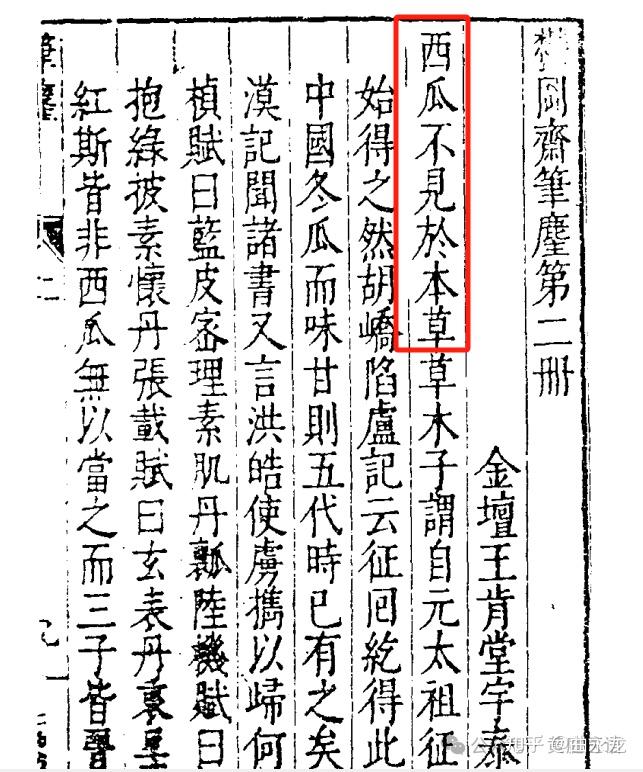 欝岡齋筆麈第二冊
金壇王肯堂宇泰
西瓜不見於本草草木子謂自元太祖征
始得之然胡嶠陷盧記云征囘紇得此
中國冬瓜而味甘則五代時已有之矣
漠記聞諸書又言洪皓使虜携以歸何
楨賦曰藍皮宻理素肌丹瓤陸機賦曰
抱綠被素懷丹張載賦曰玄表丹裏呈
紅斯皆非西瓜無以當之而三子皆晉
筆麈 二